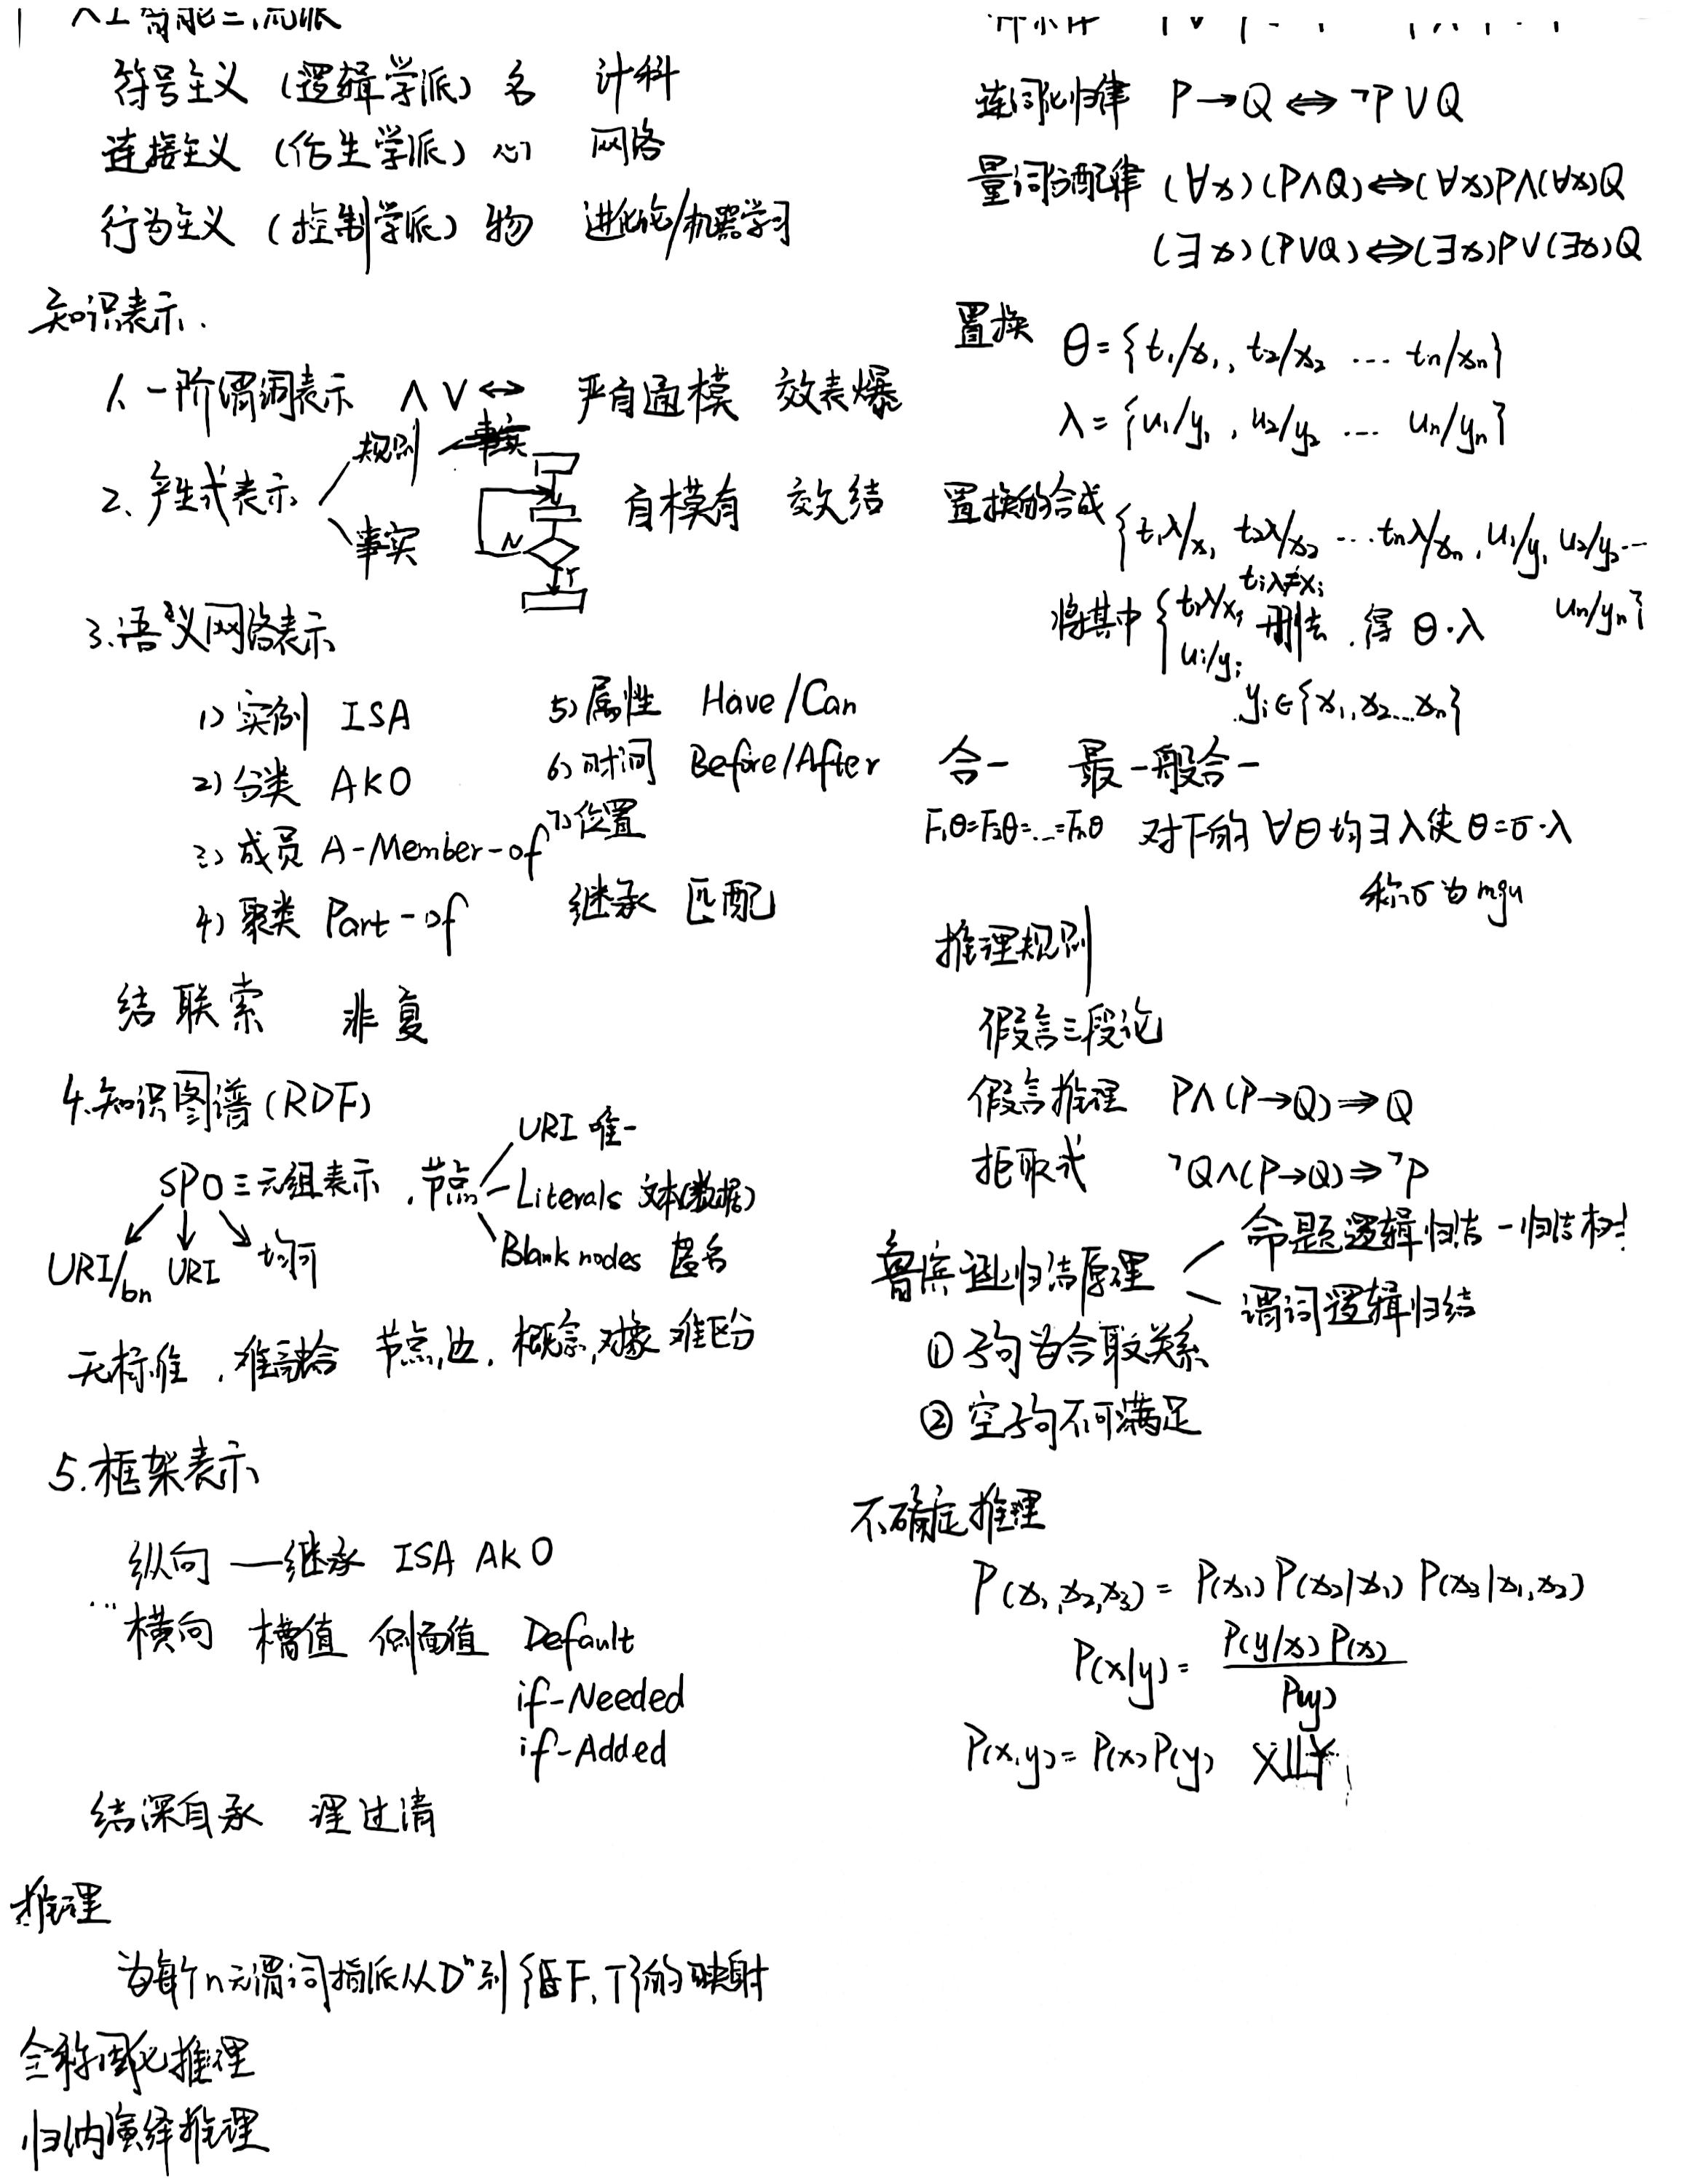 人工智能三流派
符号主义（逻辑学派）名 计科
连接主义（仿生学派）心 网络
行为主义（控制学派）物 进化论/机器学习
知识表示.
1. 一阶谓词表示 ∧ ∨ ↔ 严自通模 效表爆
规则
2、产生式表示 自模有 效结
事实
N
Y
3.语义网络表示
1) 实例 ISA
2) 分类 AKO
3) 成员 A-Member-of
4) 聚类 Part-of
5) 属性 Have/Can
6) 时间 Before/After
7) 位置
继承 匹配
结 联 索 非 复
4.知识图谱(RDF)
URI 唯一
SPO三元组表示，节点 Literals 文本(数据)
Blank nodes 匿名
URI/bn URI 均可
无标准，难融合 节点,边, 概念,对象 难区分
5.框架表示
纵向 — 继承 ISA AKO
横向 槽值 侧面值 Default
if-Needed
if-Added
结深自承 理过清
推理
为每个n元谓词指派从Dⁿ到{F,T}的映射
全称固化推理
归纳演绎推理
连词化归律 P→Q⇔¬P∨Q
量词分配律 (∀x)(P∧Q)⇔(∀x)P∧(∀x)Q
(∃x)(P∨Q)⇔(∃x)P∨(∃x)Q
置换 θ={t₁/x₁, t₂/x₂ … tn/xn}
λ={u₁/y₁, u₂/y₂ … un/yn}
置换的合成 {t₁λ/x₁ t₂λ/x₂ … tnλ/xn, u₁/y₁ u₂/y₂…
un/yn}
将其中 { tiλ/xi tiλ≠xi 删去，得 θ·λ
ui/yi
yi∈{x₁,x₂…xn}
合一 最一般合一
F₁θ=F₂θ=…=Fnθ 对F的∀θ均∃λ使θ=σ·λ
称σ为mgu
推理规则
假言三段论
假言推理 P∧(P→Q)⇒Q
拒取式 ¬Q∧(P→Q)⇒¬P
命题逻辑归结 — 归结树
鲁宾逊归结原理
谓词逻辑归结
① 子句为合取关系
② 空子句不可满足
不确定推理
P(x₁,x₂,x₃)= P(x₁)P(x₂|x₁)P(x₃|x₁,x₂)
P(x|y)= P(y|x)P(x)/P(y)
P(x,y)=P(x)P(y) X⫫Y